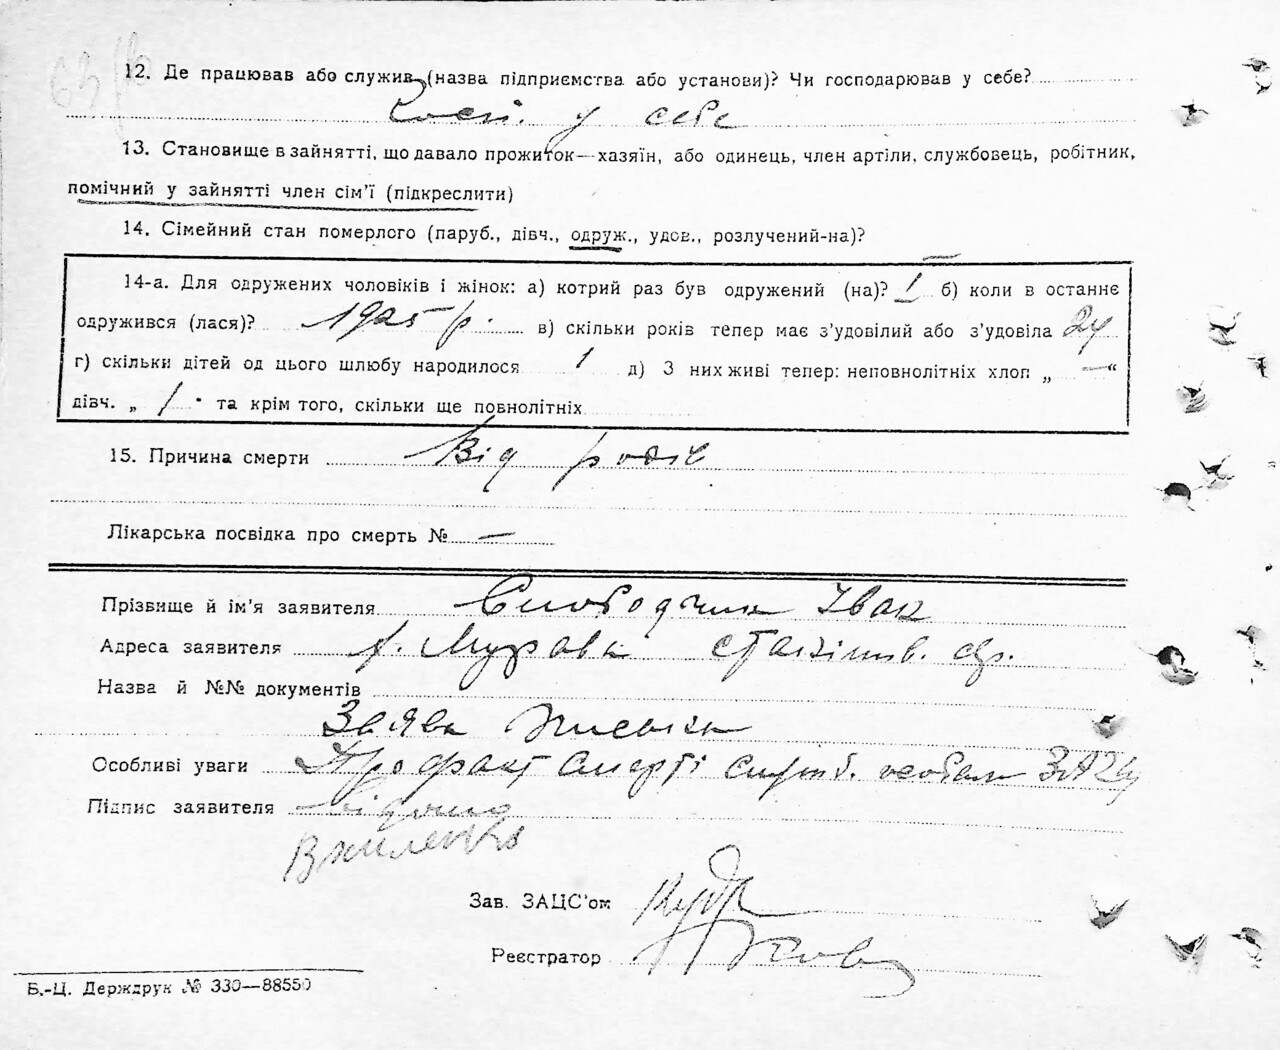 12. Де працював або служив (назва підприємства або установи)? Чи господарював у себе?
у себе
13. Становище в зайнятті, що давало прожиток—хазяїн, або одинець, член артіли, службовець, робітник,
помічний у зайнятті член сім'ї (підкреслити)
14. Сімейний стан померлого (паруб., дівч., одруж., удов., розлучений-на)?
14-а. Для одружених чоловіків і жінок: а) котрий раз був одружений (на)? I б) коли в останнє
одружився (лася)? 1925 р. в) скільки років тепер має з'удовілий або з'удовіла 24
г) скільки дітей од цього шлюбу народилося 1 д) З них живі тепер: неповнолітніх хлоп „ — “
дівч. „ 1 та крім того, скільки ще повнолітніх
15. Причина смерти Від родів
Лікарська посвідка про смерть № —
Прізвище й ім'я заявителя Іван
Адреса заявителя х.
Назва й №№ документів
Заява
Особливі уваги Про факт смерті
Підпис заявителя
Зав. ЗАЦС'ом
Реєстратор
Б.-Ц. Держдрук № 330—88550